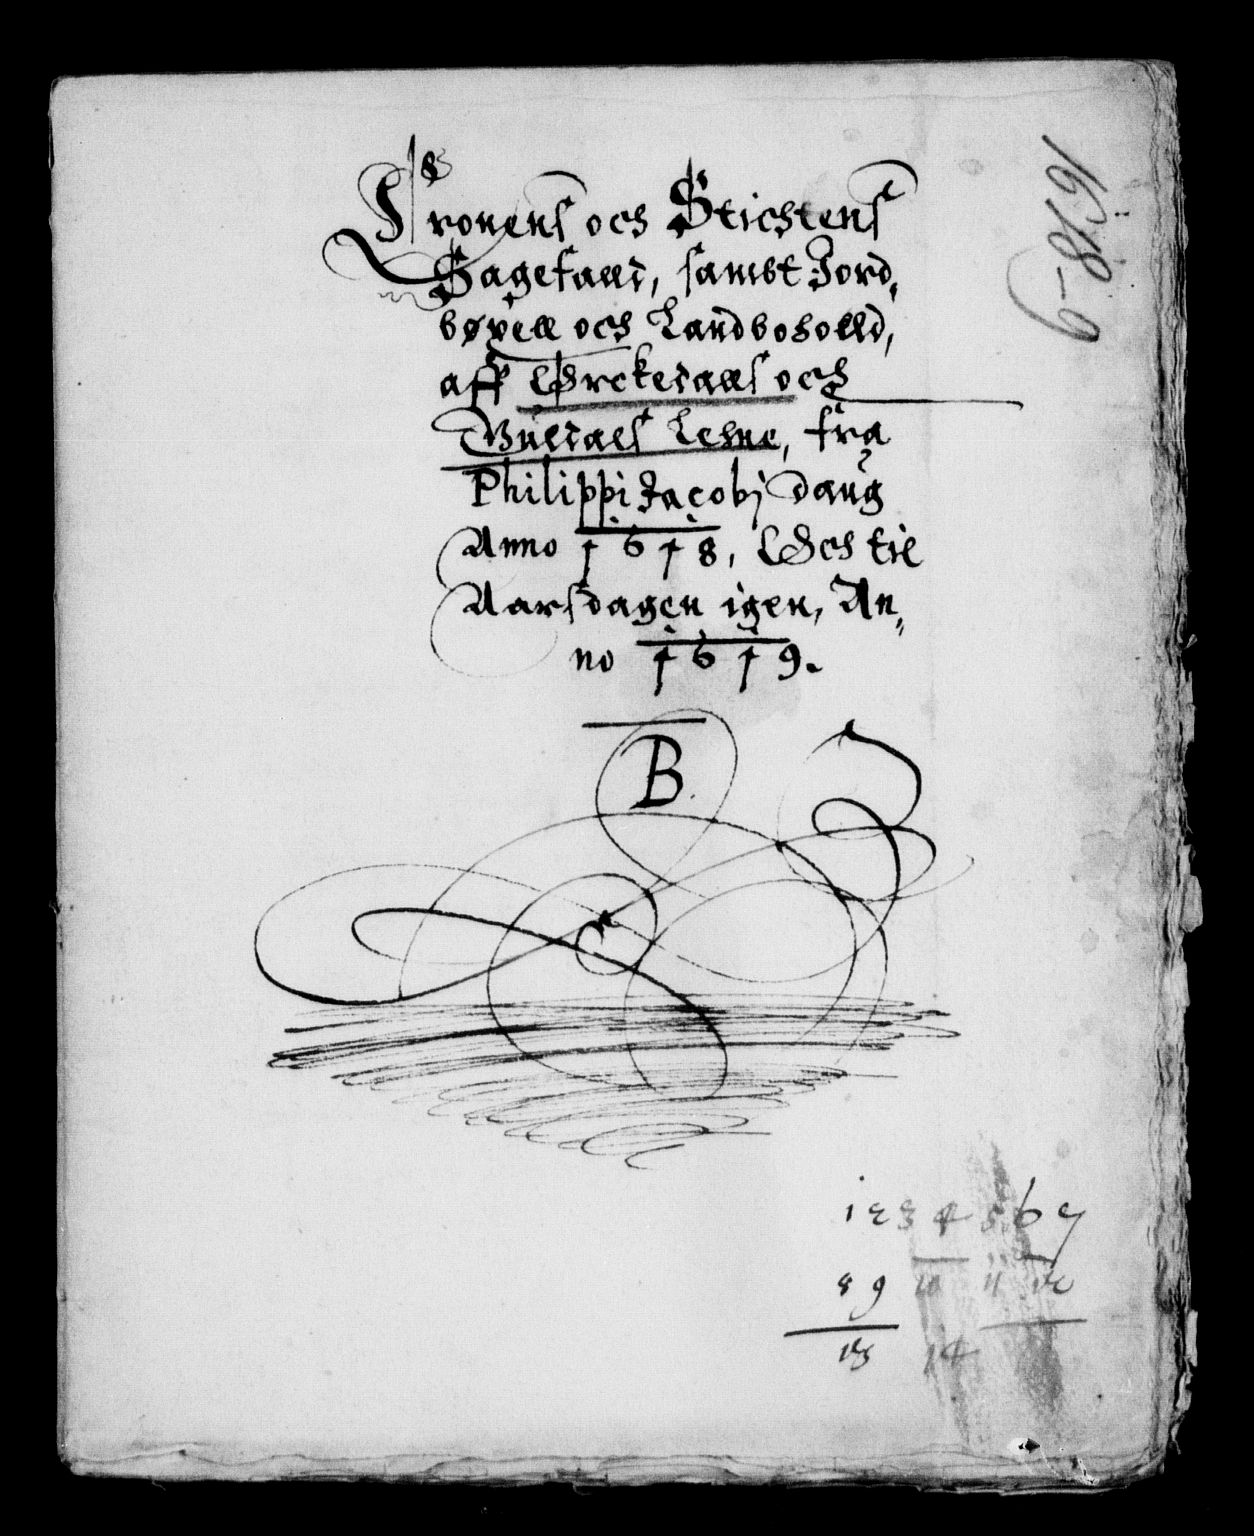 1618-9
Kronens och Stichtens
Sagefalld, sambt Jord,
bøxell och Landboholld,
aff Orckedalls och
Guldals Lehne, fra
Philippi Jacobj daug
Anno 1618, Och til
Aarsdagen igen, An,
no 1619.
B.
1 2 3 4 5 6 7
8 9 10 11 12
13 14